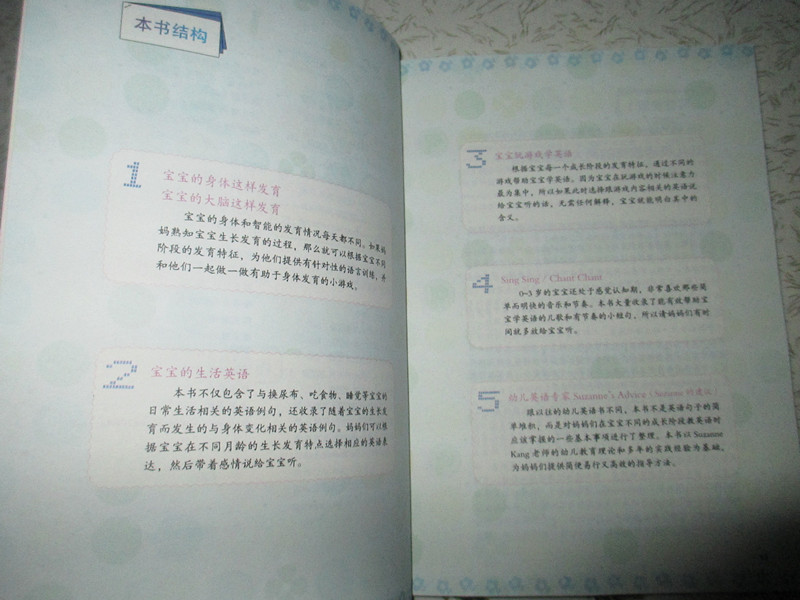 本书结构
1
宝宝的身体这样发育
宝宝的大脑这样发育
宝宝的身体和智能的发育情况每天都不同。如果妈
妈熟知宝宝生长发育的过程，那么就可以根据宝宝不同
阶段的发育特征，为他们提供有针对性的语言训练，并
和他们一起做一做有助于身体发育的小游戏。
2
宝宝的生活英语
本书不仅包含了与换尿布、吃食物、睡觉等宝宝的
日常生活相关的英语例句，还收录了随着宝宝的生长发
育而发生的与身体变化相关的英语例句。妈妈们可以根
据宝宝在不同月龄的生长发育特点选择相应的英语表
达，然后带着感情说给宝宝听。
3
宝宝玩游戏学英语
根据宝宝每一个成长阶段的发育特征，通过不同的
游戏帮助宝宝学英语。因为宝宝在玩游戏的时候注意力
最为集中，所以如果此时选择跟游戏内容相关的英语说
给宝宝听的话，无需任何解释，宝宝就能明白其中的
含义。
4
Sing Sing / Chant Chant
0~3 岁的宝宝还处于感觉认知期，非常喜欢那些简
单而明快的音乐和节奏。本书大量收录了能有效帮助宝
宝学英语的儿歌和有节奏的小短句，所以请妈妈们有时
间就多放给宝宝听。
5
幼儿英语专家 Suzanne's Advice（Suzanne 的建议）
跟以往的幼儿英语书不同，本书不是英语句子的简
单堆积，而是对妈妈们在宝宝不同的成长阶段教英语时
应该掌握的一些基本事项进行了整理。本书以 Suzanne
Kang 老师的幼儿教育理论和多年的实践经验为基础，
为妈妈们提供简便易行又高效的指导方法。